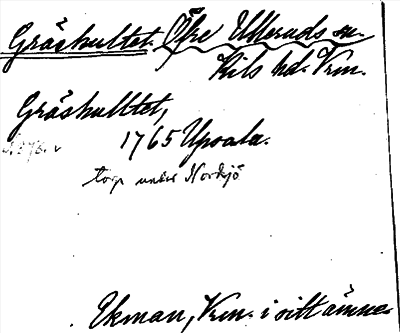 Gräshultet. Öfre Ulleruds sn.
Kils hd. Vrm.
Gräshulltet,
1765 Upsala.
torp under Nordsjö
Ekman, Vrm. i sitt ämne.